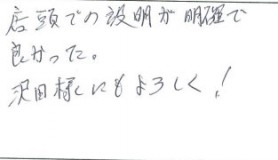 店頭での説明が明確で
良かった。
沢田様にもよろしく!